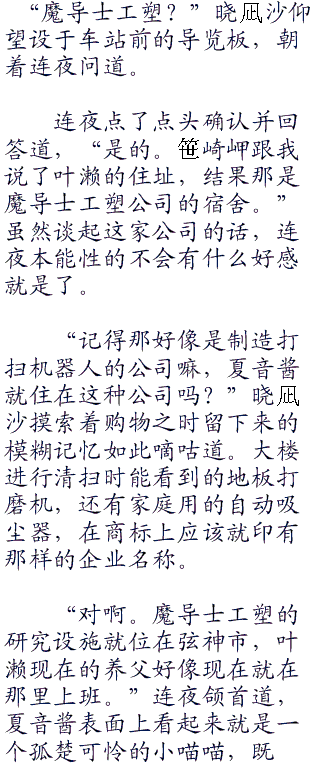 “魔导士工塑？”晓凪沙仰
望设于车站前的导览板，朝
着连夜问道。
连夜点了点头确认并回
答道，“是的。笹崎岬跟我
说了叶濑的住址，结果那是
魔导士工塑公司的宿舍。”
虽然谈起这家公司的话，连
夜本能性的不会有什么好感
就是了。
“记得那好像是制造打
扫机器人的公司嘛，夏音酱
就住在这种公司吗？”晓凪
沙摸索着购物之时留下来的
模糊记忆如此嘀咕道。大楼
进行清扫时能看到的地板打
磨机，还有家庭用的自动吸
尘器，在商标上应该就印有
那样的企业名称。
“对啊。魔导士工塑的
研究设施就位在弦神市，叶
濑现在的养父好像现在就在
那里上班。”连夜颌首道，
夏音酱表面上看起来就是一
个孤楚可怜的小喵喵，既